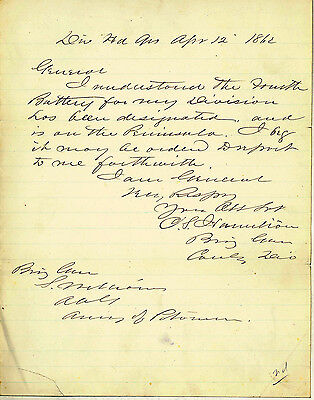 Div Hd Qrs Apr 12 1862
General
I understand the Fourth
Battery for my Division
has been designated, and
is on the Peninsula. I beg
it may be ordered to report
to me forthwith.
I am General
Very Respy
Your Obt Svt
C. S. Hamilton
Brig Gen
Comdg Div
Brig Gen
S. Williams
AAG
Army of Potomac.